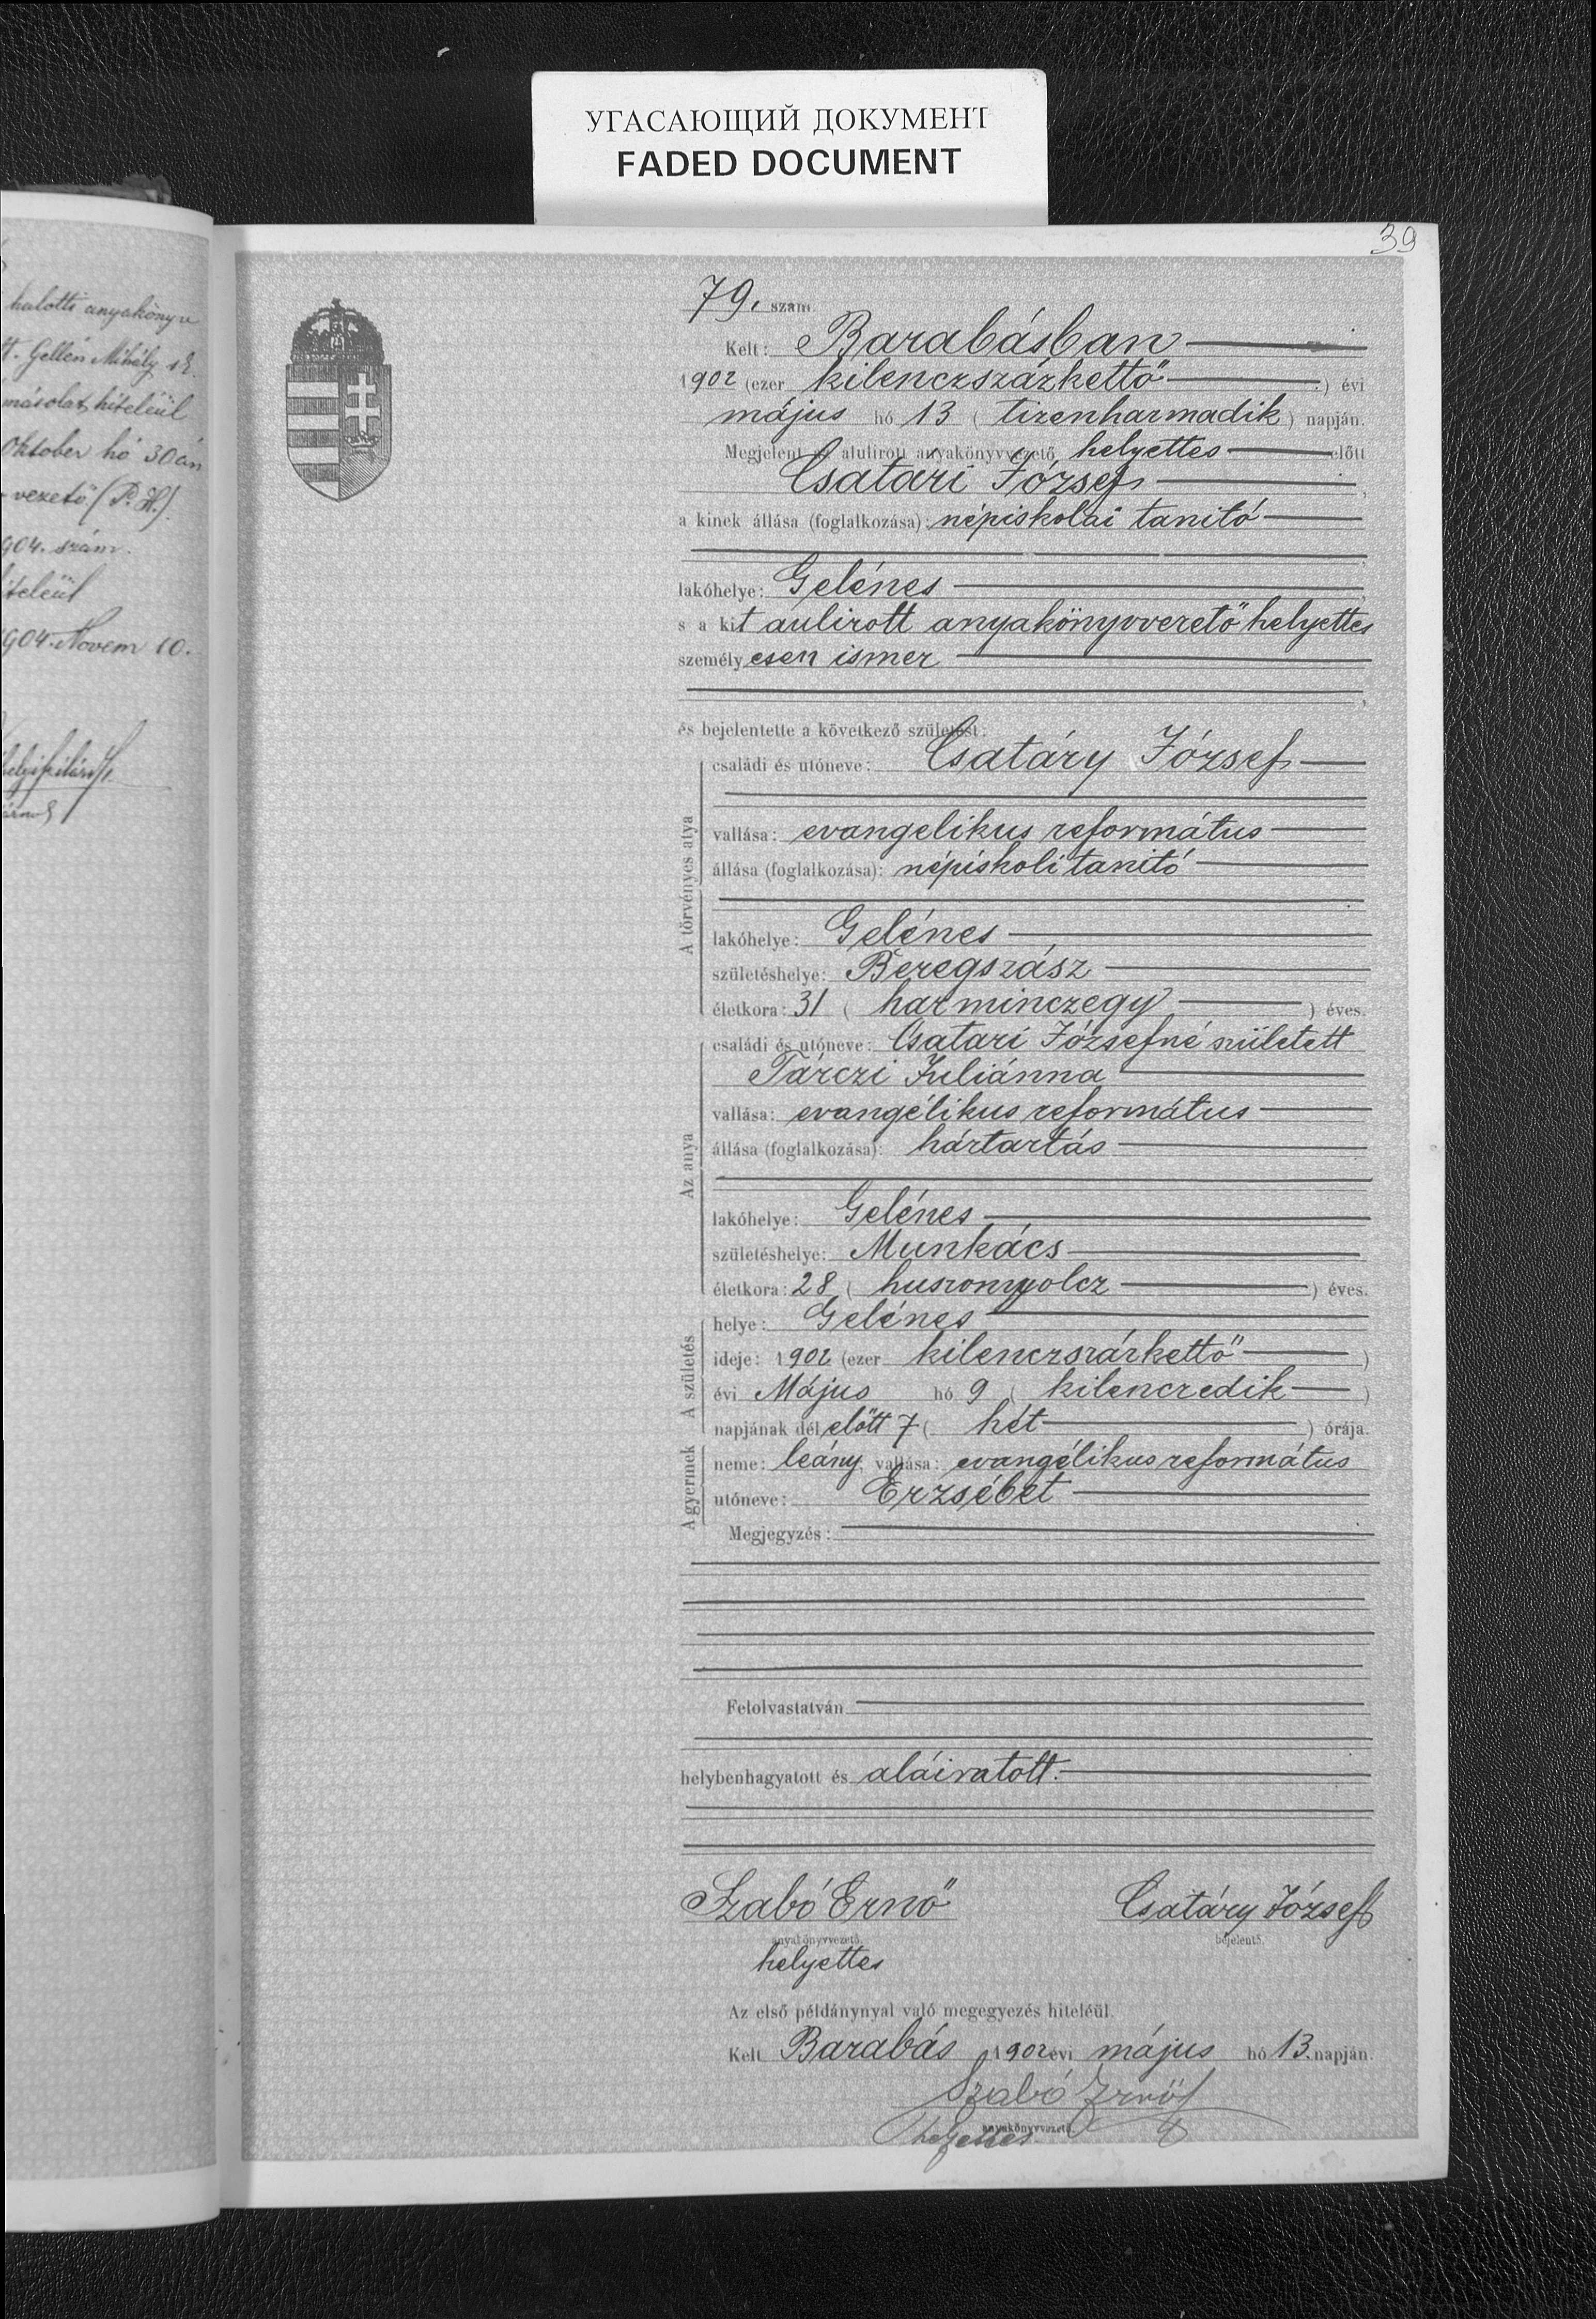 УГАСАЮЩИЙ ДОКУМЕНТ
FADED DOCUMENT
39
halotti anyakönyv
tt. Gellén Mihály sk.
másolat hiteléül
Oktober hó 30án
vezető (P. H.)
904. szám.
iteléül
904. Novem 10.
79. szám
Kelt: Barabásban
1902 (ezer kilenczszázkettő) évi
május hó 13 (tizenharmadik) napján.
Megjelent az alulirott anyakönyvvezető helyettes előtt
Csatári József,
a kinek állása (foglalkozása): népiskolai tanitó
lakóhelye: Gelénes,
s a kit aulirott anyakönyvvezető helyettes
személyesen ismer
és bejelentette a következő születést:
A törvényes atya
családi és utóneve: Csatáry József
vallása: evangelikus református
állása (foglalkozása): népiskoli tanitó
lakóhelye: Gelénes
születéshelye: Beregszász
életkora: 31 (harminczegy) éves.
Az anya
családi és utóneve: Csatari Józsefné született
Tárczi Juliánna
vallása: evangélikus református
állása (foglalkozása): háztartás
lakóhelye: Gelénes
születéshelye: Munkács
életkora: 28 (huszonnyolcz) éves.
A születés
helye: Gelénes
ideje: 1902 (ezer kilenczszázkettő)
évi Május hó 9 (kilenczedik)
napjának dél előtt 7 (hét) órája.
A gyermek
neme: leány, vallása: evangélikus református
utóneve: Erzsébet
Megjegyzés:
Felolvastatván
helybenhagyatott és aláiratott.
Szabó Ernő Csatáry József
anyakönyvvezető. bejelentő.
helyettes
Az első példánynyal való megegyezés hiteléül.
Kelt Barabás 1902 évi május hó 13. napján.
Szabó Ernő
anyakönyvvezető
helyettes